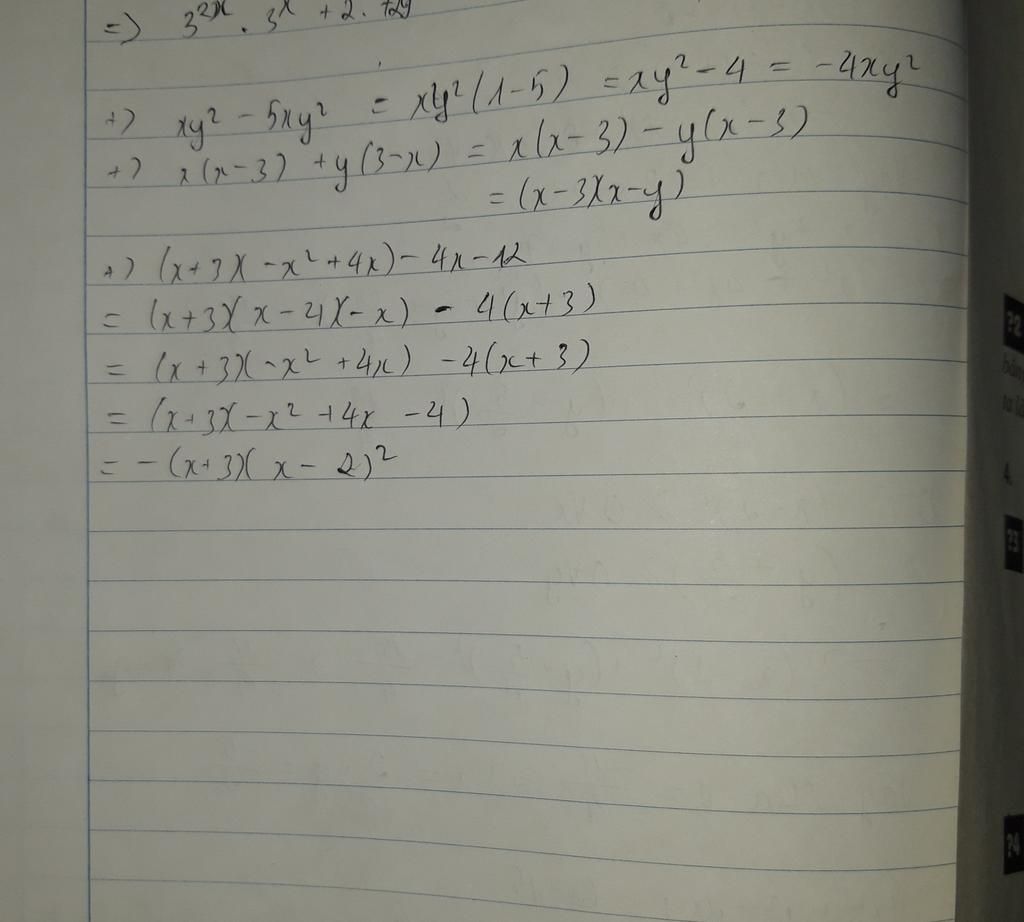 =) 3^{2x} . 3^x + 2.
+) xy² - 5xy² = xy²(1-5) = xy² - 4 = -4xy²
+) x(x-3) + y(3-x) = x(x-3) - y(x-3)
= (x-3)(x-y)
+) (x+3)(-x² + 4x) - 4x - 12
= (x+3)(x-4)(-x) - 4(x+3)
= (x+3)(-x² + 4x) - 4(x+3)
= (x+3)(-x² + 4x - 4)
= -(x+3)(x - 2)²
?2
4.
?3
?4